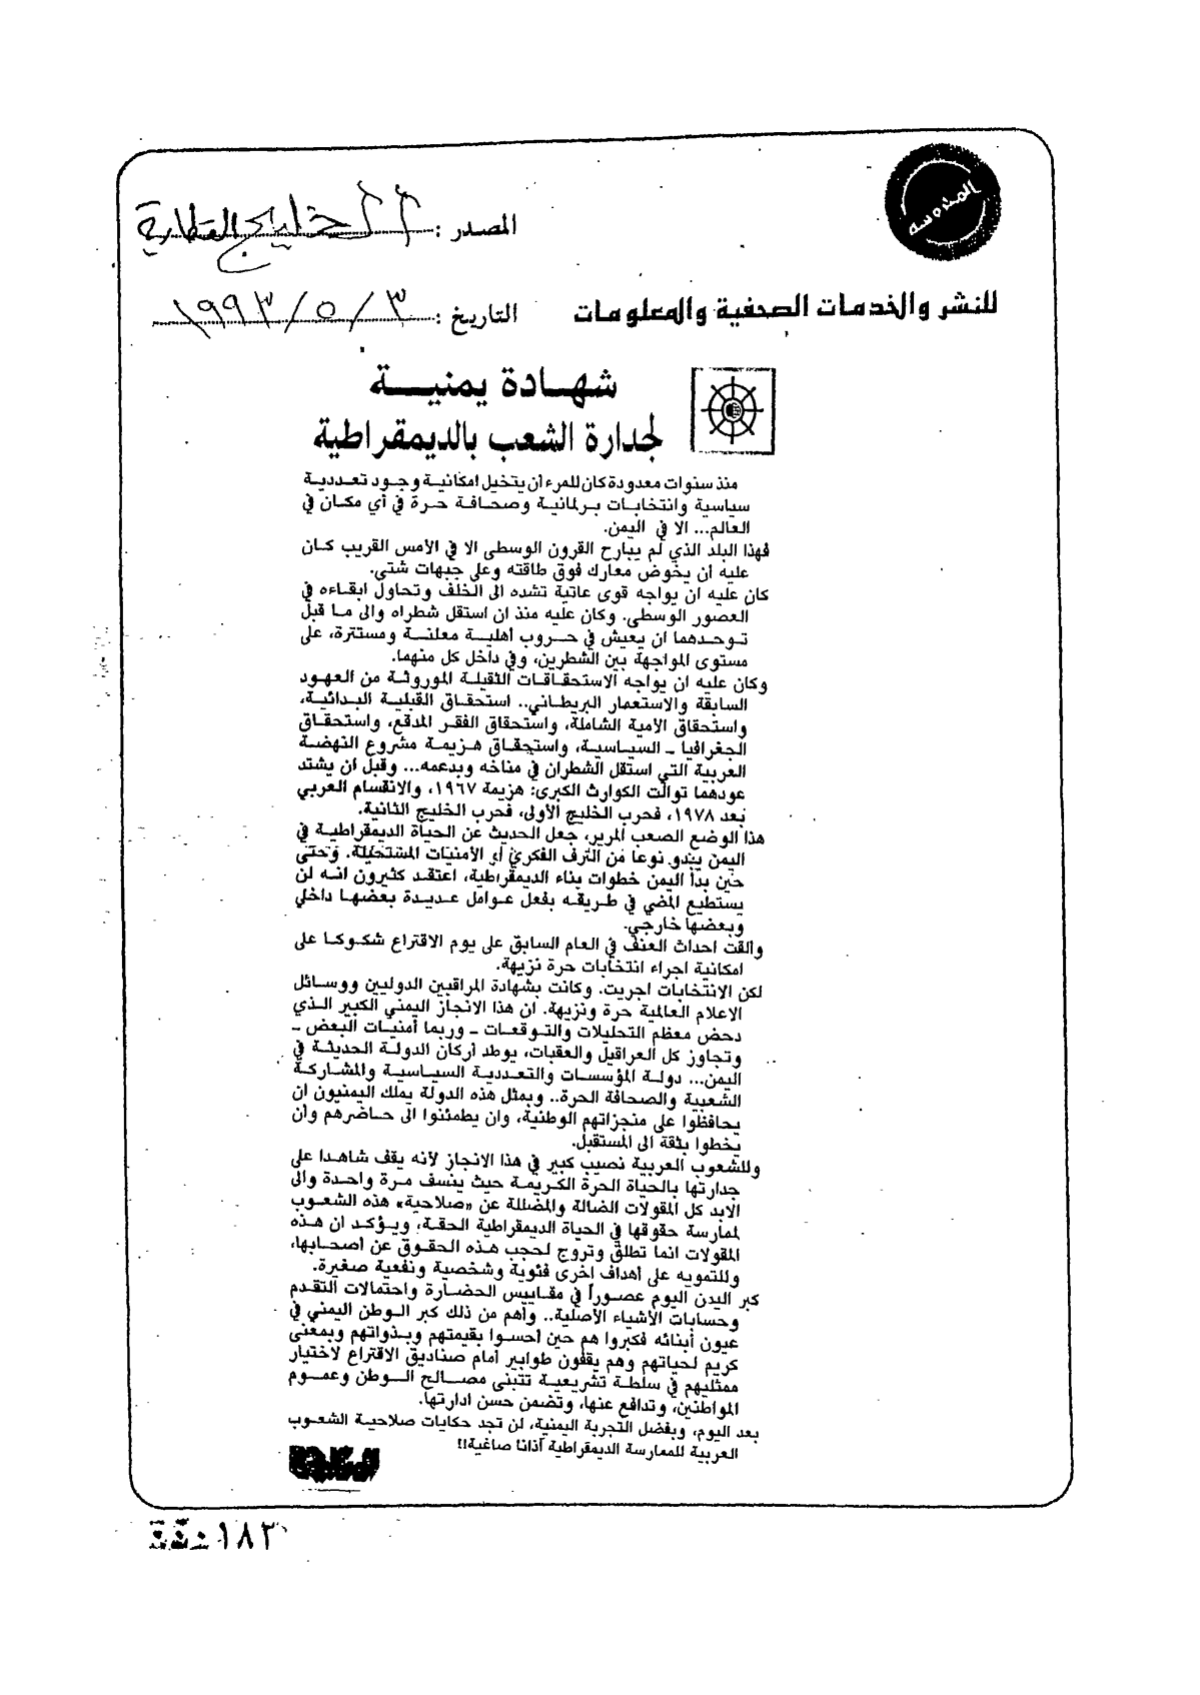 المدوسة
المصدر : الخليج القطارية
للنشر والخدمات الصحفية والمعلومات
التاريخ : ٣ / ٥ / ١٩٩٣
شهادة يمنية
لجدارة الشعب بالديمقراطية
منذ سنوات معدودة كان للمرء أن يتخيل امكانية وجود تعددية
سياسية وانتخابات برلمانية وصحافة حرة في أي مكان في
العالم... الا في اليمن.
فهذا البلد الذي لم يبارح القرون الوسطى الا في الأمس القريب كان
عليه ان يخوض معارك فوق طاقته وعلى جبهات شتى.
كان عليه ان يواجه قوى عاتية تشده الى الخلف وتحاول ابقاءه في
العصور الوسطى. وكان عليه منذ ان استقل شطراه والى ما قبل
توحدهما ان يعيش في حروب أهلية معلنة ومستترة، على
مستوى المواجهة بين الشطرين، وفي داخل كل منهما.
وكان عليه ان يواجه الاستحقاقات الثقيلة الموروثة من العهود
السابقة والاستعمار البريطاني.. استحقاق القبلية البدائية،
واستحقاق الأمية الشاملة، واستحقاق الفقر المدقع، واستحقاق
الجغرافيا ـ السياسية، واستحقاق هزيمة مشروع النهضة
العربية التي استقل الشطران في مناخه وبدعمه... وقبل ان يشتد
عودهما توالت الكوارث الكبرى: هزيمة ١٩٦٧، والانقسام العربي
بعد ١٩٧٨، فحرب الخليج الأولى، فحرب الخليج الثانية.
هذا الوضع الصعب المرير، جعل الحديث عن الحياة الديمقراطية في
اليمن يبدو نوعا من الترف الفكري أو الأمنيات المستحيلة. وحتى
حين بدأ اليمن خطوات بناء الديمقراطية، اعتقد كثيرون انه لن
يستطيع المضي في طريقه بفعل عوامل عديدة بعضها داخلي
وبعضها خارجي.
وألقت احداث العنف في العام السابق على يوم الاقتراع شكوكا على
امكانية اجراء انتخابات حرة نزيهة.
لكن الانتخابات اجريت. وكانت بشهادة المراقبين الدوليين ووسائل
الاعلام العالمية حرة ونزيهة. ان هذا الانجاز اليمني الكبير الذي
دحض معظم التحليلات والتوقعات ـ وربما أمنيات البعض ـ
وتجاوز كل العراقيل والعقبات، يوطد أركان الدولة الحديثة في
اليمن... دولة المؤسسات والتعددية السياسية والمشاركة
الشعبية والصحافة الحرة.. وبمثل هذه الدولة يملك اليمنيون ان
يحافظوا على منجزاتهم الوطنية، وان يطمئنوا الى حاضرهم وأن
يخطوا بثقة الى المستقبل.
وللشعوب العربية نصيب كبير في هذا الانجاز لأنه يقف شاهدا على
جدارتها بالحياة الحرة الكريمة حيث ينسف مرة واحدة والى
الابد كل المقولات الضالة والمضللة عن «صلاحية» هذه الشعوب
لممارسة حقوقها في الحياة الديمقراطية الحقة، ويؤكد ان هذه
المقولات انما تطلق وتروج لحجب هذه الحقوق عن أصحابها،
وللتمويه على أهداف اخرى فئوية وشخصية ونفعية صغيرة.
كبر اليمن اليوم عصوراً في مقاييس الحضارة واحتمالات التقدم
وحسابات الأشياء الأصلية.. وأهم من ذلك كبر الوطن اليمني في
عيون أبنائه فكبروا هم حين أحسوا بقيمتهم وبذواتهم وبمعنى
كريم لحياتهم وهم يقفون طوابير أمام صناديق الاقتراع لاختيار
ممثليهم في سلطة تشريعية تتبنى مصالح الوطن وعموم
المواطنين، وتدافع عنها، وتضمن حسن ادارتها.
بعد اليوم، وبفضل التجربة اليمنية، لن تجد حكايات صلاحية الشعوب
العربية للممارسة الديمقراطية آذانا صاغية!!
١٨٢